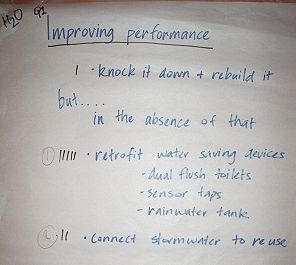 H2O Q1
Improving performance
1 · knock it down + rebuild it
but....
in the absence of that
① IIIII · retrofit water saving devices
- dual flush toilets
- sensor taps
- rainwater tank
② II · Connect stormwater to reuse